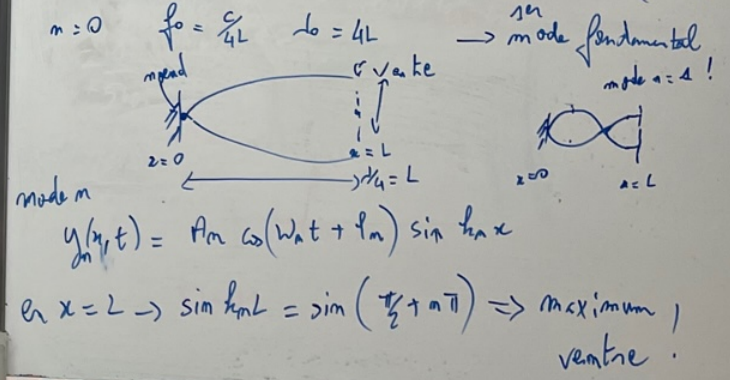 n = 0 f₀ = c/4L λ₀ = 4L → 1er mode fondamental
nœud ventre mode n = 1 !
x = 0 x = L x = 0 x = L
λ/4 = L
mode n
yₙ(x,t) = Aₙ cos(ωₙt + φₙ) sin kₙx
en x = L → sin kₙL = sin (π/2 + nπ) ⇒ maximum !
ventre !